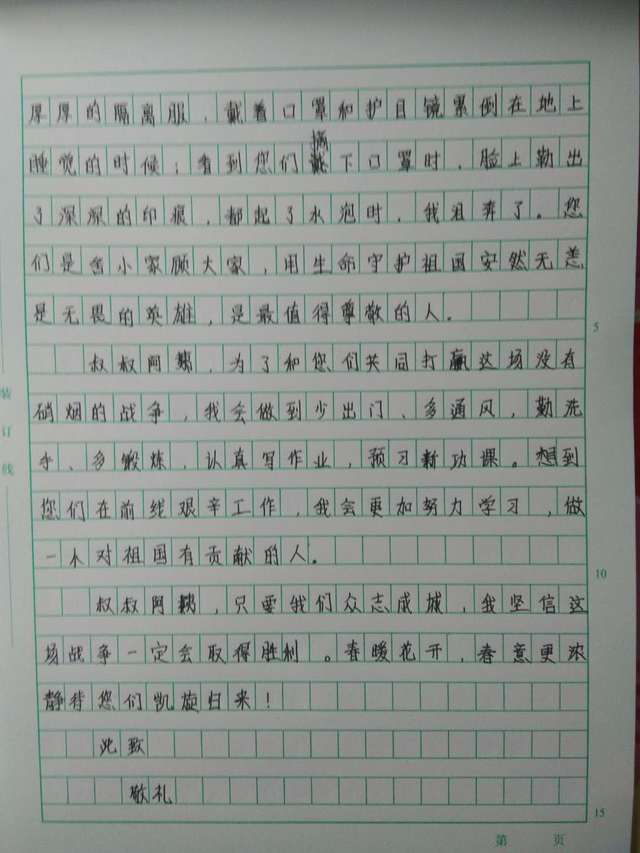 厚厚的隔离服，戴着口罩和护目镜累倒在地上
睡觉的时候；看到您们摘下口罩时，脸上勒出
了深深的印痕，都起了水泡时，我泪奔了。您
们是舍小家顾大家，用生命守护祖国安然无恙
是无畏的英雄，是最值得尊敬的人。
5
叔叔阿姨，为了和您们共同打赢这场没有
硝烟的战争，我会做到少出门、多通风，勤洗
手、多锻炼，认真写作业，预习新功课。想到
您们在前线艰辛工作，我会更加努力学习，做
一个对祖国有贡献的人。
10
叔叔阿姨，只要我们众志成城，我坚信这
场战争一定会取得胜利。春暖花开，春意更浓
静待您们凯旋归来！
此致
敬礼
15
装订线
第 页